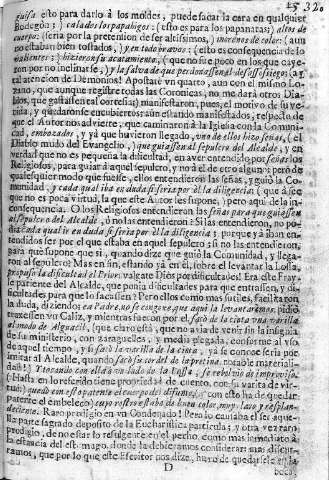 25 320
guisa esto para darlo à los moldes, puede sacar la cera en qualquier
Bodegon); calados los papahigos: (esto es para los papanatas;) altos de
cuerpo: (seria por la pretension de ser altissimos,) morenos de color: (aun
no estaban bien tostados,) y en todo pravos: (esto es consequencia de lo
hizieron su acatamiento, (que no fue poco en los que caye-
ron por no inclinarse,) y la salva de que perdonassen el desassossiego; (à la
atencion de Demonios,
no, que aunque registre todas las Coronicas, no me darà otros Dia-
blos, que gastassen tal cortesia:) manifestaron, pues, el motivo de su ve-
nida, y quedaronse encubiertos aun estando manifestados, respecto de
que el Autor nos advierte, que caminaron à la Iglesia con la Comuni-
dad, embozados, y yà que huvieron llegado, uno de ellos hizo señas, (el
Diablo mudo del Evangelio,) que guiassen al sepulcro del Alcalde; y en
verdad que no es pequeña la dificultad, en aver entendido por señas los
Religiosos, para guiar à aquel sepulcro, y no à el de otro alguno; pero de
qualesquier modo que fuesse, ellos entendieron las señas, y guiò la Co-
munidad, y cada qual iba en duda si seria por èl la diligencia: (que à fee
que no es poca virtud, la que este Autor les supone,) pero aqui de la in-
consequencia. O los Religiosos entendieron las señas para que guiassen
al sepulcro del Alcalde, ò no las entendieron: Si las entendieron, no po-
dia cada qual ir en duda si seria por èl la diligencia; porque yà iban en-
tendidos ser por el que estaba en aquel sepulcro; si no las entendieron,
para que supone que si, quando dize que guiò la Comunidad, y llega-
ron al sepulcro? Mas en fin, estando yà en èl, sobre el levantar la Losa,
propuso la dificultad el Prior: valgate Dios por dificultades! Era este Fray-
le pariente del Alcalde, que ponia dificultades para que entrassen, y di-
ficultades para que lo sacassen? Pero ellos como mas sutiles, facilitaron
la duda, diziendo: ea Padre, no se congoxe, que aqui la levantaremos. Pidiò
traxessen vn Caliz, y mientras fueron por el, sacò de la cinta vna varilla
al modo de Alguazil, (que claro està, que no avia de venir sin la insignia
de su ministerio, con zaraguelles, y media plegada, conforme al vso
de aquel tiempo, y sacò la varilla de la cinta, yà se conoce seria por
imitar al Alcalde, quando
dad!) Y tocando con ella à vn lado de la Losa, se rebolviò de improviso:
(Hasta en lo referido tiene propriedad de cuento, con su varita de vir-
tud:) quedò con esto patente el cuerpo del difunto, (con esto ha de quedar
patente el embeleco;) cuyo rostro estaba de lindo color, muy laso y resplan-
deciente. Raro prodigio en vn Condenado! Pero lo causaba el ser aque-
lla parte sagrado deposito de la Eucharistica particula; y otra vez raro
prodigio, de no estar lo refulgente en el pecho, como mas inmediato à
la estancia del estomago, donde la debieramos considerar: mas discur-
ramos, que por lo que este Escritor nos dize, huvo de quedarsele en la
D
boca